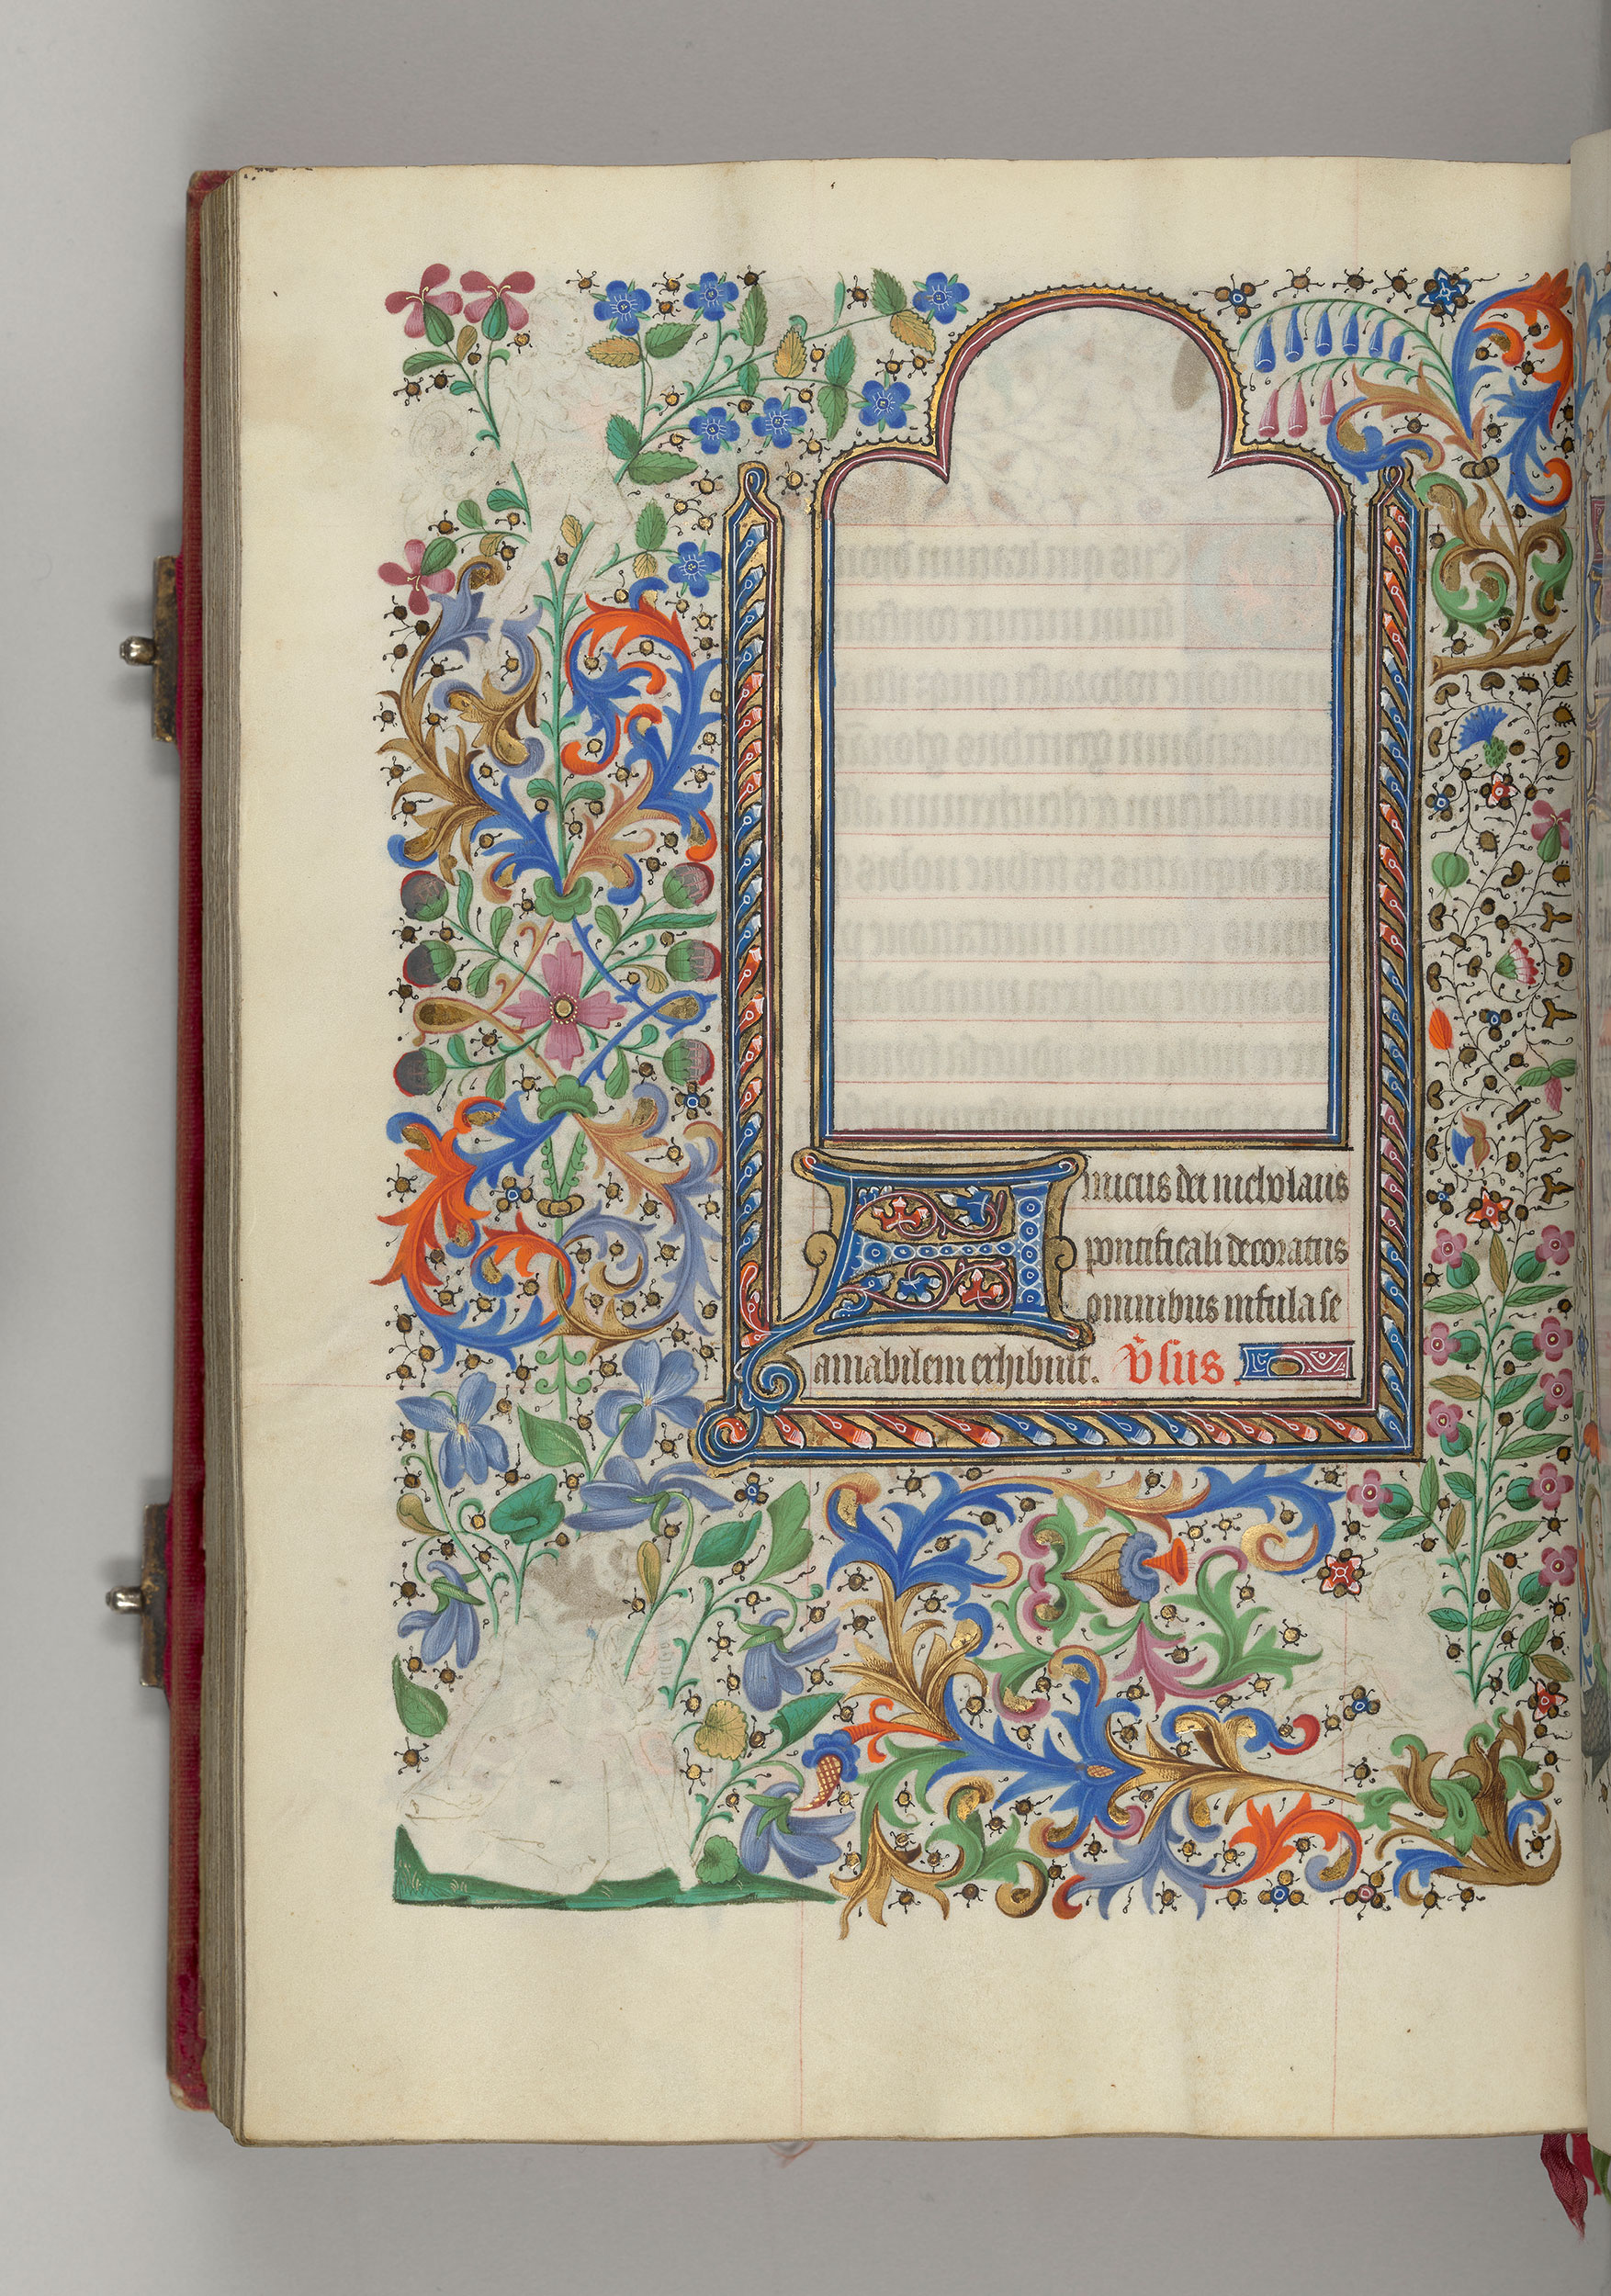 Amicus dei nicholaus
pontificali decoratus
omnibus infula se
amabilem exhibuit. v̄sus.